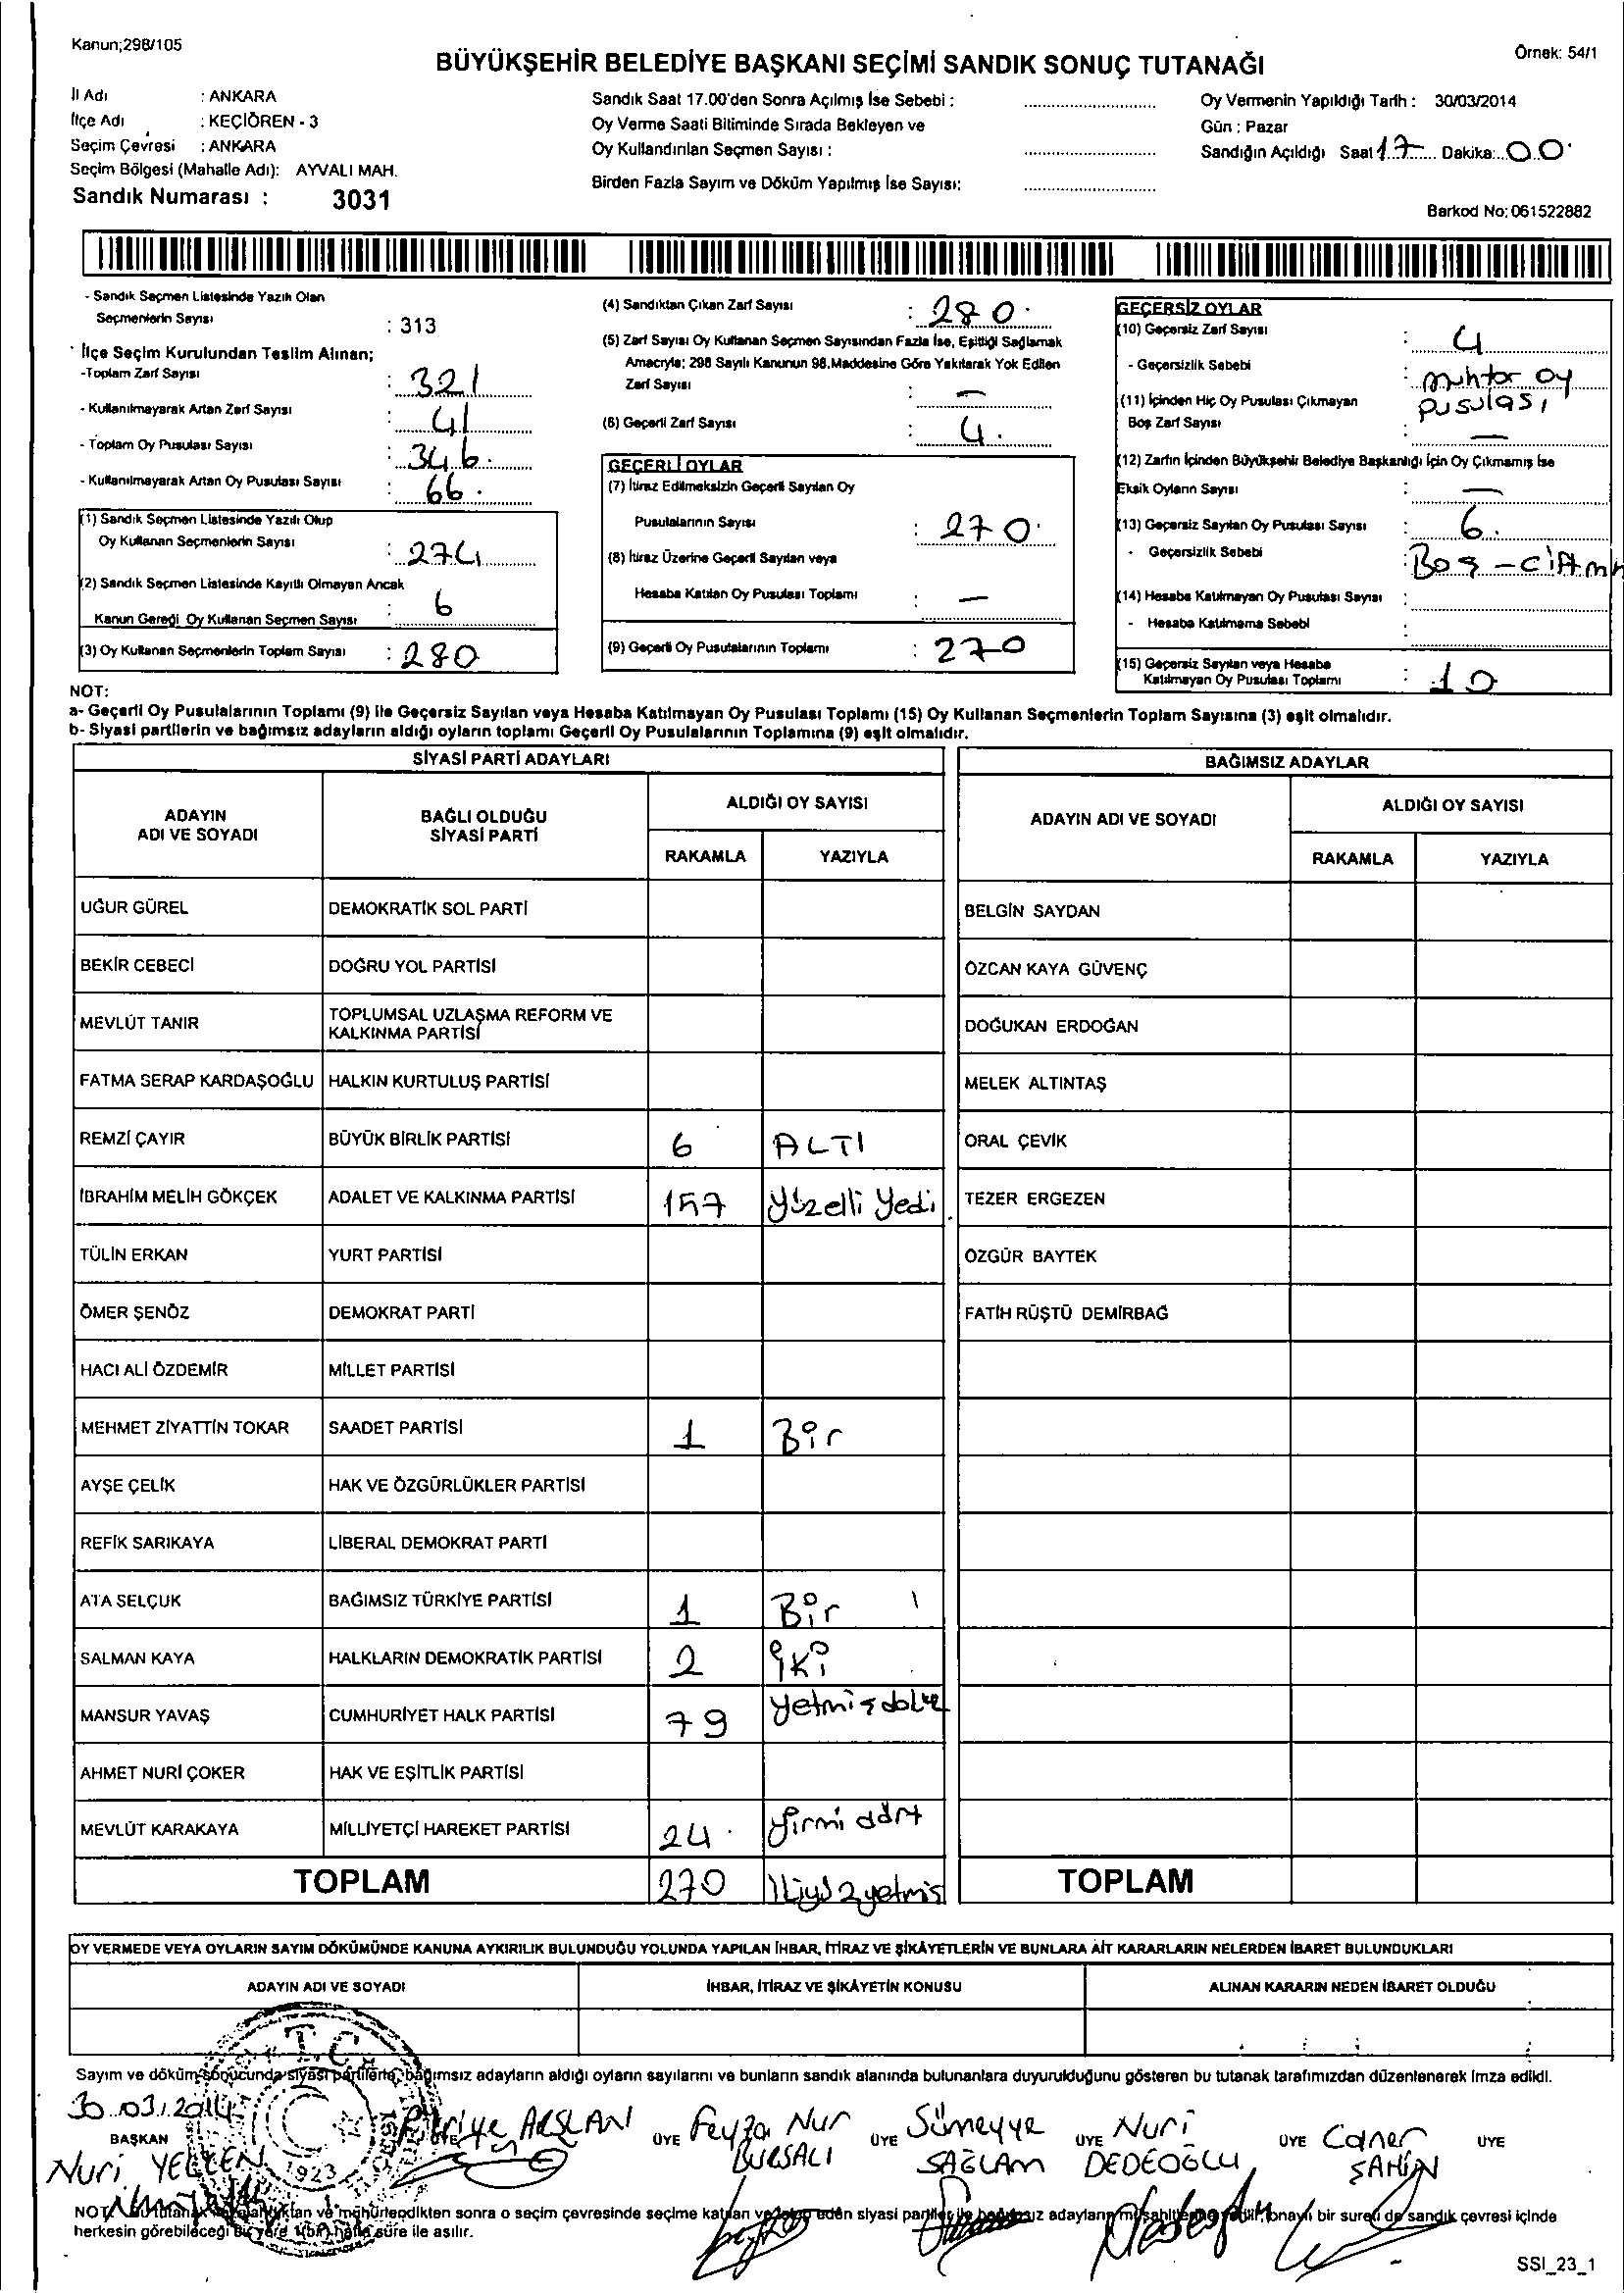 Kanun;298/105
BÜYÜKŞEHİR BELEDİYE BAŞKANI SEÇİMİ SANDIK SONUÇ TUTANAĞI
Örnek: 54/1
İl Adı : ANKARA
İlçe Adı : KEÇİÖREN - 3
Seçim Çevresi : ANKARA
Seçim Bölgesi (Mahalle Adı): AYVALI MAH.
Sandık Numarası : 3031
Sandık Saat 17.00'den Sonra Açılmış İse Sebebi :
Oy Verme Saati Bitiminde Sırada Bekleyen ve
Oy Kullandırılan Seçmen Sayısı :
Birden Fazla Sayım ve Döküm Yapılmış İse Sayısı:
Oy Vermenin Yapıldığı Tarih : 30/03/2014
Gün : Pazar
Sandığın Açıldığı Saat 17 Dakika: 00
Barkod No: 061522882
- Sandık Seçmen Listesinde Yazılı Olan
Seçmenlerin Sayısı : 313
İlçe Seçim Kurulundan Teslim Alınan;
-Toplam Zarf Sayısı : 321
- Kullanılmayarak Artan Zarf Sayısı : 41
- Toplam Oy Pusulası Sayısı : 346
- Kullanılmayarak Artan Oy Pusulası Sayısı : 66
(1) Sandık Seçmen Listesinde Yazılı Olup
Oy Kullanan Seçmenlerin Sayısı : 274
(2) Sandık Seçmen Listesinde Kayıtlı Olmayan Ancak
Kanun Gereği Oy Kullanan Seçmen Sayısı : 6
(3) Oy Kullanan Seçmenlerin Toplam Sayısı : 280
(4) Sandıktan Çıkan Zarf Sayısı : 280
(5) Zarf Sayısı Oy Kullanan Seçmen Sayısından Fazla İse, Eşitliği Sağlamak
Amacıyla; 298 Sayılı Kanunun 98.Maddesine Göre Yakılarak Yok Edilen
Zarf Sayısı : —
(6) Geçerli Zarf Sayısı : 4.
GEÇERLİ OYLAR
(7) İtiraz Edilmeksizin Geçerli Sayılan Oy
Pusulalarının Sayısı : 270
(8) İtiraz Üzerine Geçerli Sayılan veya
Hesaba Katılan Oy Pusulası Toplamı : —
(9) Geçerli Oy Pusulalarının Toplamı : 270
GEÇERSİZ OYLAR
(10) Geçersiz Zarf Sayısı : 4
- Geçersizlik Sebebi : muhtar oy
pusulası
(11) İçinden Hiç Oy Pusulası Çıkmayan
Boş Zarf Sayısı : —
(12) Zarfın İçinden Büyükşehir Belediye Başkanlığı İçin Oy Çıkmamış İse
Eksik Oyların Sayısı : —
(13) Geçersiz Sayılan Oy Pusulası Sayısı : 6.
- Geçersizlik Sebebi : Boş -
(14) Hesaba Katılmayan Oy Pusulası Sayısı :
- Hesaba Katılmama Sebebi :
(15) Geçersiz Sayılan veya Hesaba
Katılmayan Oy Pusulası Toplamı : 10
NOT:
a- Geçerli Oy Pusulalarının Toplamı (9) ile Geçersiz Sayılan veya Hesaba Katılmayan Oy Pusulası Toplamı (15) Oy Kullanan Seçmenlerin Toplam Sayısına (3) eşit olmalıdır.
b- Siyasi partilerin ve bağımsız adayların aldığı oyların toplamı Geçerli Oy Pusulalarının Toplamına (9) eşit olmalıdır.
SİYASİ PARTİ ADAYLARI
ADAYIN ADI VE SOYADI BAĞLI OLDUĞU SİYASİ PARTİ ALDIĞI OY SAYISI
RAKAMLA YAZIYLA
UĞUR GÜREL DEMOKRATİK SOL PARTİ
BEKİR CEBECİ DOĞRU YOL PARTİSİ
MEVLÜT TANIR TOPLUMSAL UZLAŞMA REFORM VE KALKINMA PARTİSİ
FATMA SERAP KARDAŞOĞLU HALKIN KURTULUŞ PARTİSİ
REMZİ ÇAYIR BÜYÜK BİRLİK PARTİSİ 6 ALTI
İBRAHİM MELİH GÖKÇEK ADALET VE KALKINMA PARTİSİ 157 Yüzelli Yedi
TÜLİN ERKAN YURT PARTİSİ
ÖMER ŞENÖZ DEMOKRAT PARTİ
HACI ALİ ÖZDEMİR MİLLET PARTİSİ
MEHMET ZİYATTİN TOKAR SAADET PARTİSİ 1 Bir
AYŞE ÇELİK HAK VE ÖZGÜRLÜKLER PARTİSİ
REFİK SARIKAYA LİBERAL DEMOKRAT PARTİ
ATA SELÇUK BAĞIMSIZ TÜRKİYE PARTİSİ 1 Bir
SALMAN KAYA HALKLARIN DEMOKRATİK PARTİSİ 2 iki
MANSUR YAVAŞ CUMHURİYET HALK PARTİSİ 79
AHMET NURİ ÇOKER HAK VE EŞİTLİK PARTİSİ
MEVLÜT KARAKAYA MİLLİYETÇİ HAREKET PARTİSİ 24 yirmi dört
TOPLAM 270
BAĞIMSIZ ADAYLAR
ADAYIN ADI VE SOYADI ALDIĞI OY SAYISI
RAKAMLA YAZIYLA
BELGİN SAYDAN
ÖZCAN KAYA GÜVENÇ
DOĞUKAN ERDOĞAN
MELEK ALTINTAŞ
ORAL ÇEVİK
TEZER ERGEZEN
ÖZGÜR BAYTEK
FATİH RÜŞTÜ DEMİRBAĞ
TOPLAM
OY VERMEDE VEYA OYLARIN SAYIM DÖKÜMÜNDE KANUNA AYKIRILIK BULUNDUĞU YOLUNDA YAPILAN İHBAR, İTİRAZ VE ŞİKÂYETLERİN VE BUNLARA AİT KARARLARIN NELERDEN İBARET BULUNDUKLARI
ADAYIN ADI VE SOYADI İHBAR, İTİRAZ VE ŞİKÂYETİN KONUSU ALINAN KARARIN NEDEN İBARET OLDUĞU
T.C.
1923
Sayım ve döküm sonucunda siyasi partilerle, bağımsız adayların aldığı oyların sayılarını ve bunların sandık alanında bulunanlara duyurulduğunu gösteren bu tutanak tarafımızdan düzenlenerek imza edildi.
30.03.2014
BAŞKAN Nuri
ÜYE ARSLAN
ÜYE Feyza Nur BURSALI
ÜYE Sümeyye SAĞLAM
ÜYE Nuri DEDEOĞLU
ÜYE Caner ŞAHİN
ÜYE
NOT: mühürlendikten sonra o seçim çevresinde seçime katılan siyasi partiler ile bağımsız adayların onaylı bir sureti de sandık çevresi içinde
herkesin görebileceği bir yere 1(bir) hafta süre ile asılır.
SSI_23_1